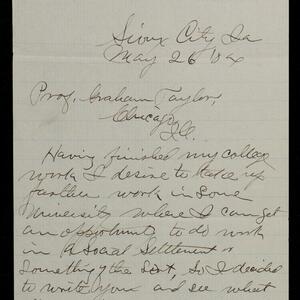 Sioux City, Ia
May 26 '04
Prof. Graham Taylor,
Chicago
Ill.
Having finished my college
work I desire to take up
further work in some
University where I can get
an opportunity to do work
in a Social Settlement or
something of the sort, so I decided
to write you and see what